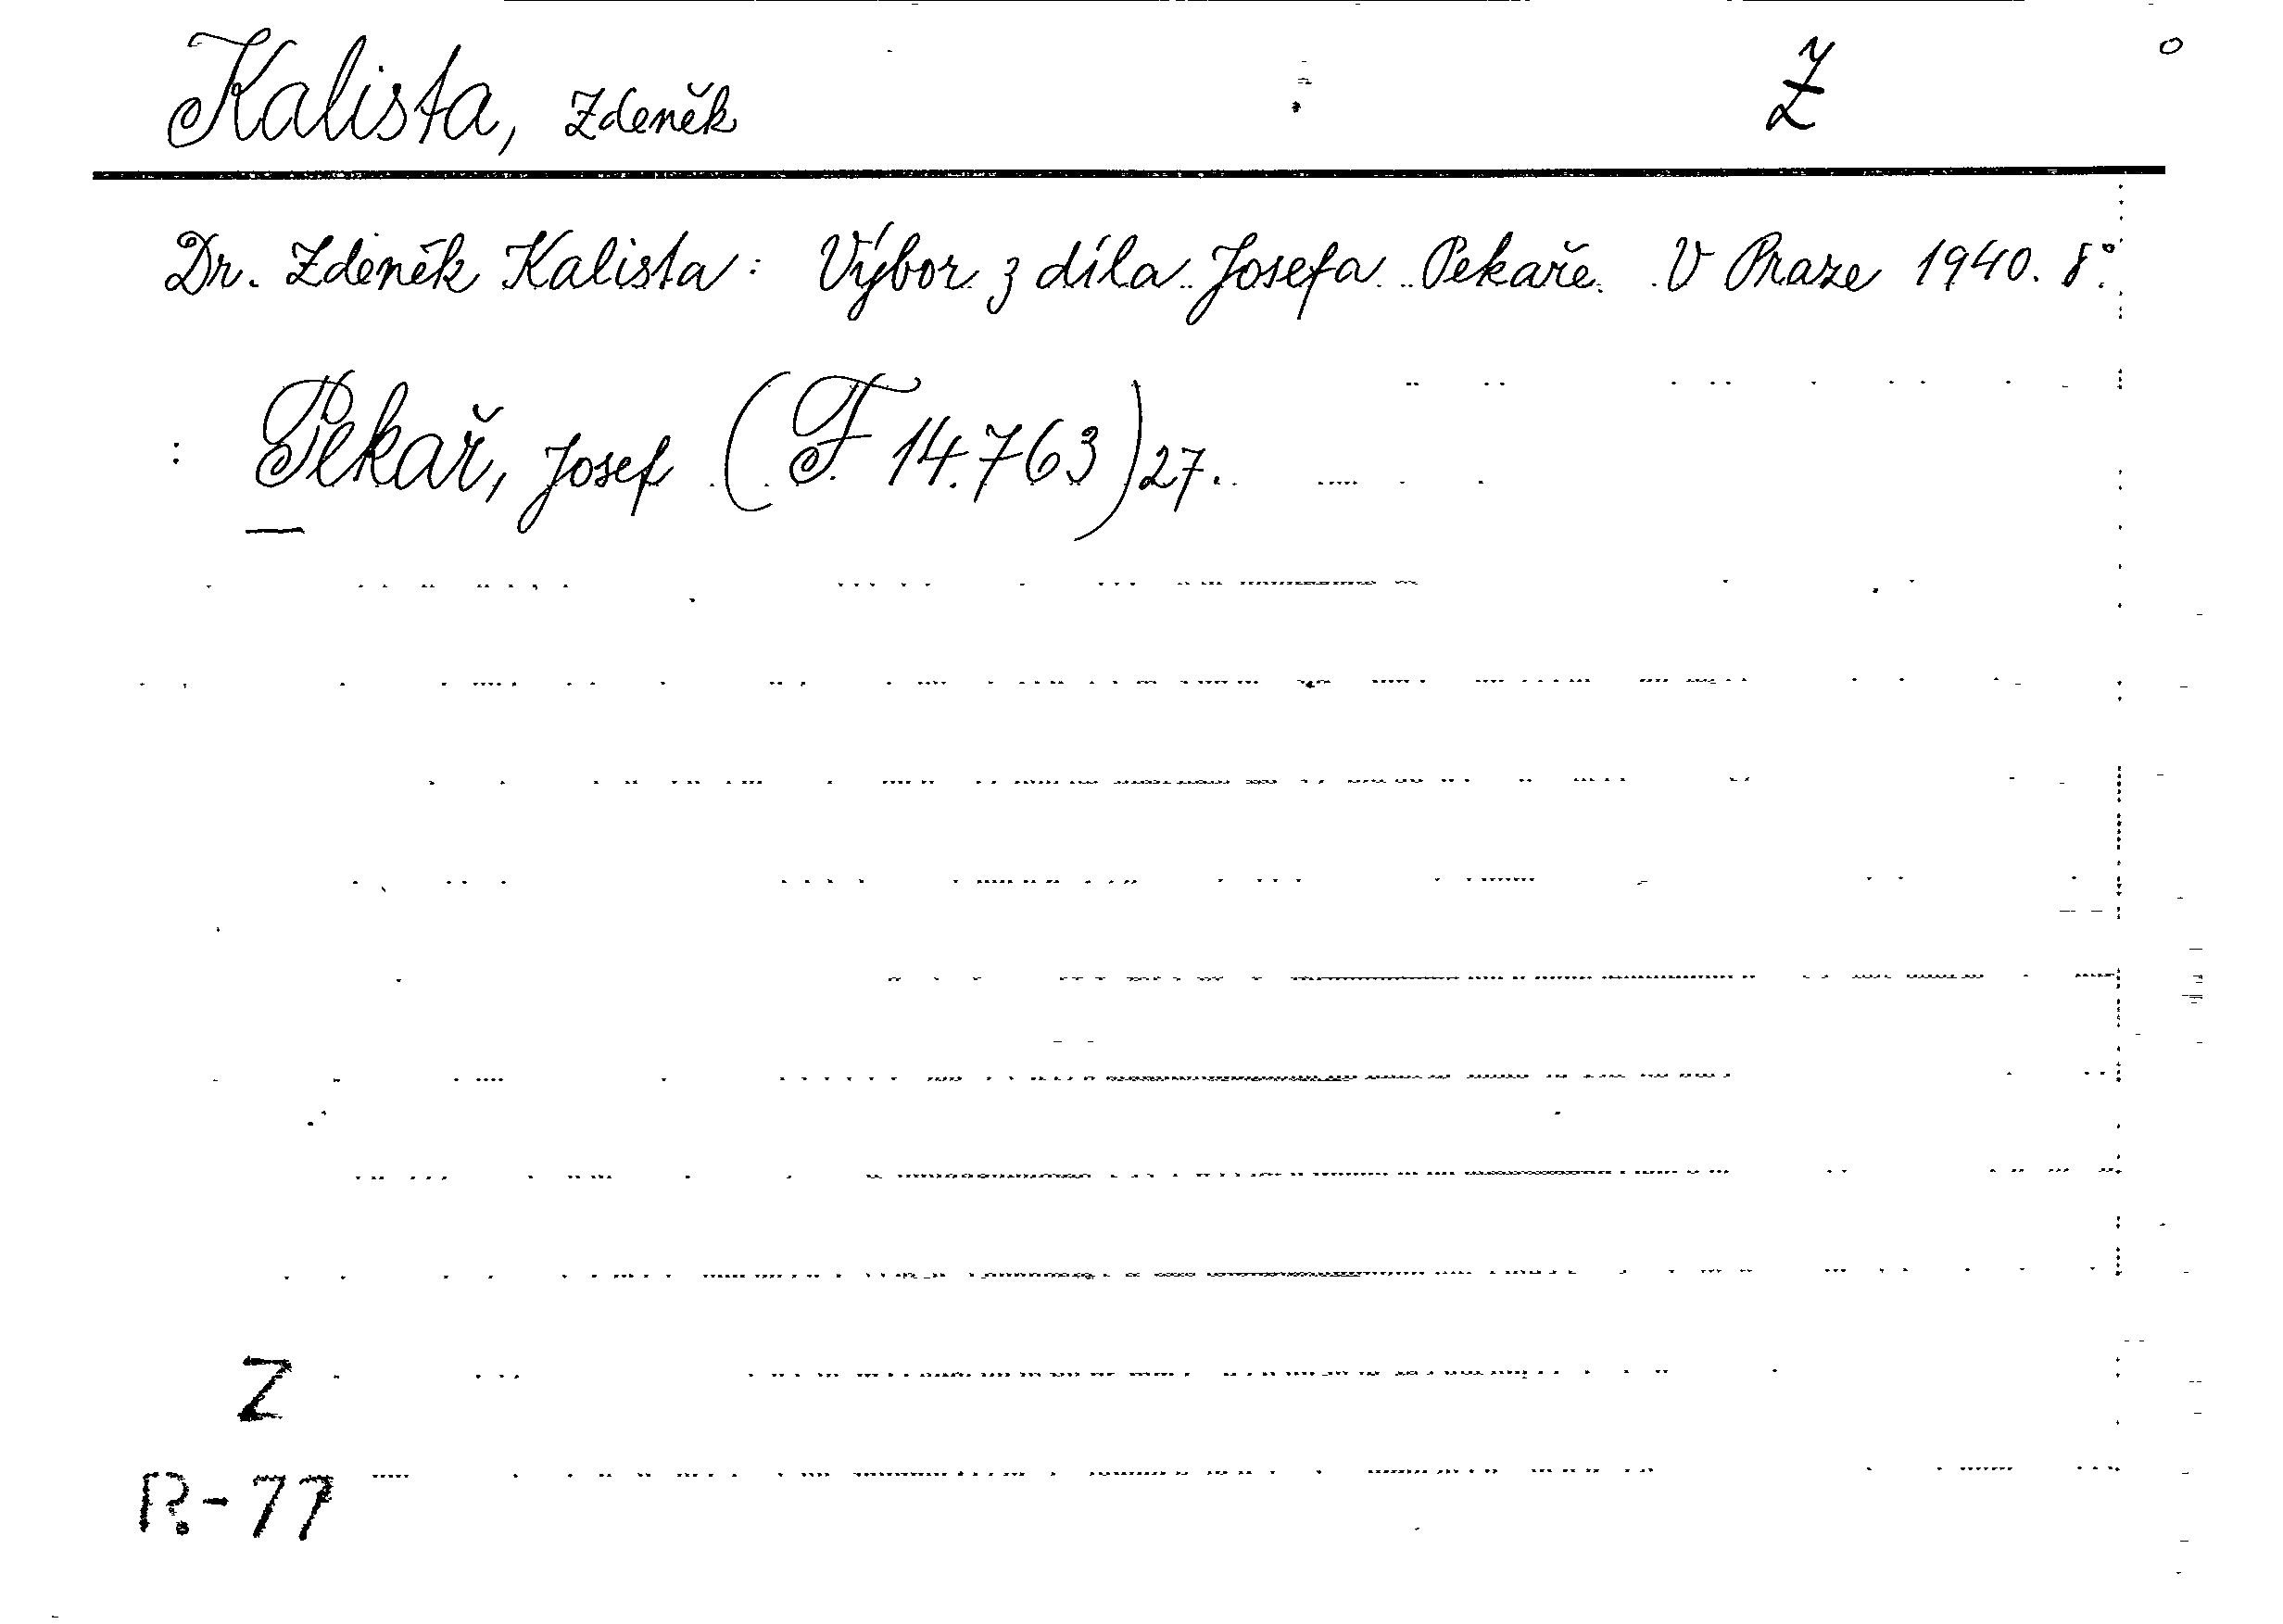 Kalista, Zdeněk Ž
Dr. Zdeněk Kalista: Výbor z díla Josefa Pekaře. V Praze 1940. 8°.
: Pekař, Josef (F 14.763) 27.
Z
R-77